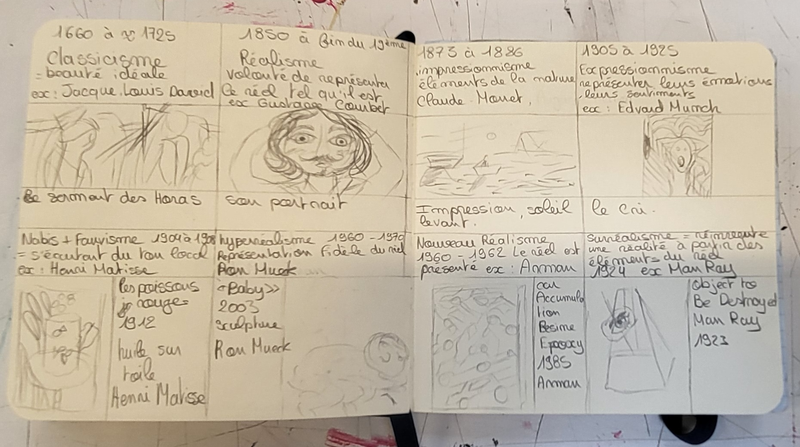 1660 à 1725
Classicisme
= beauté idéale
ex: Jacque. Louis David
Le serment des Horas
1850 à fin du 19ème
Réalisme
volonté de représenter
le réel tel qu'il est
ex Gustave Courbet
son portrait
1873 à 1886
impressionnisme
éléments de la nature
Claude Monet,
Impression, soleil
levant.
1905 à 1925
Expressionnisme
représenter leurs émotions
leurs sentiments
ex: Edvard Munch
le Cri.
Nabis + Fauvisme 1904 à 1908
= s'écartent du ton local
ex: Henri Matisse
les poissons
rouge=
1912
huile sur
toile
Henri Matisse
hyperréalisme 1960 - 1970
Représentation Fidèle du réel
Ron Mueck
«Baby»
2003
sculpture
Ron Mueck
Nouveau Réalisme
1960 - 1962 Le réel est
présenté ex: Arman
Accumula
tion
Résine
Epoxy
1985
Arman
Surréalisme = réinvente
une réalité à partir des
éléments du réel
1924 ex Man Ray
Object to
Be Destroyed
Man Ray
1923